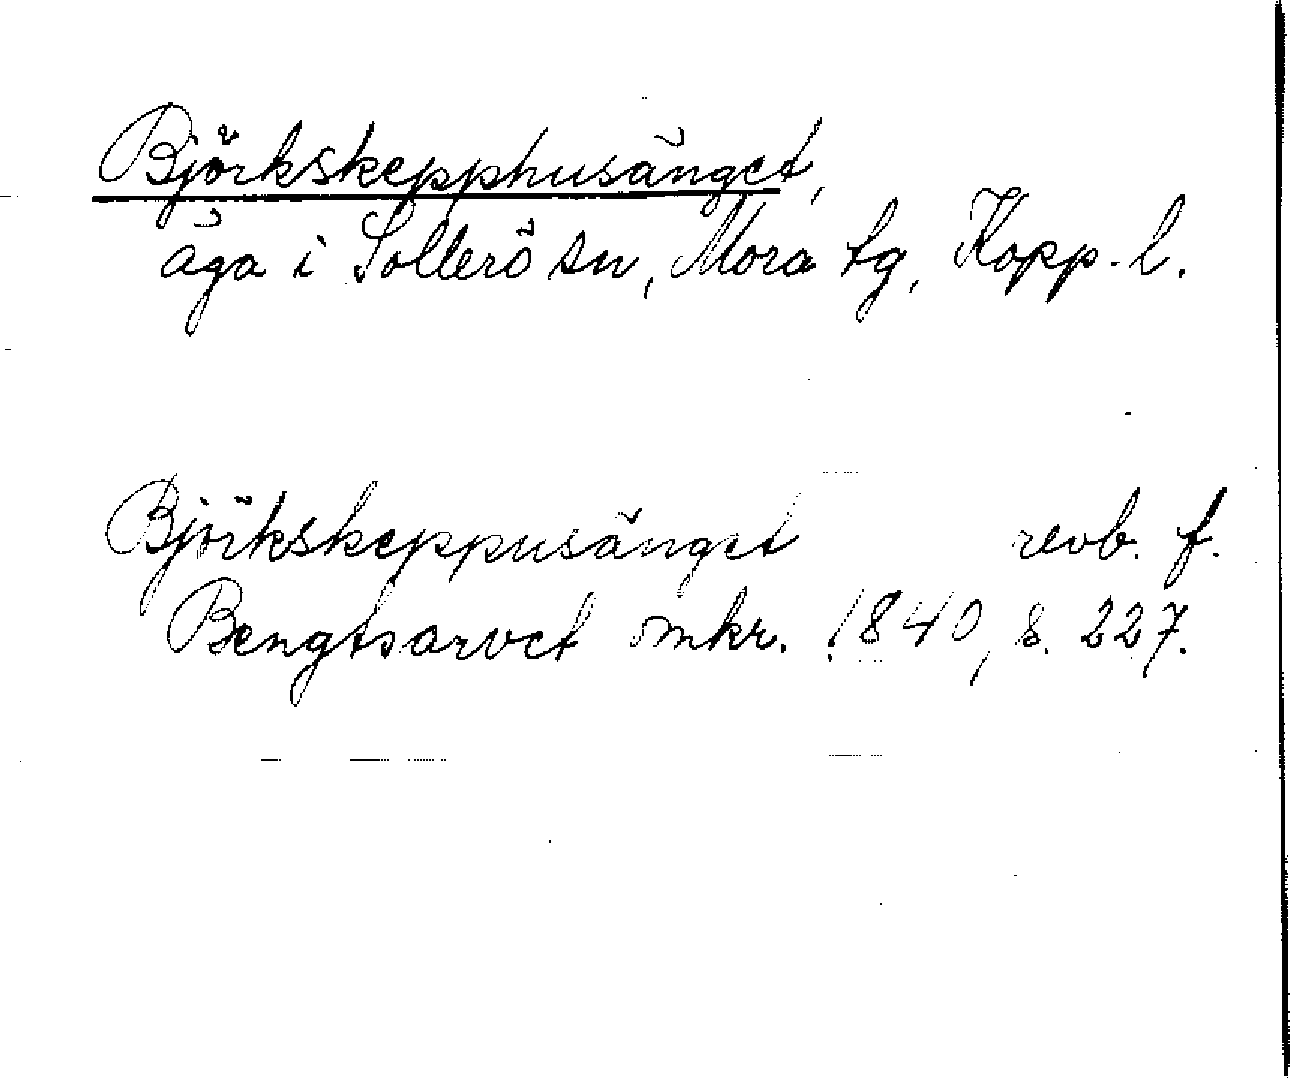 Björkskepphusänget,
äga i Sollerö sn, Mora tg, Kopp. l.
Björkskeppusänget revb. f.
Bengtsarvet omkr. 1840, s. 227.